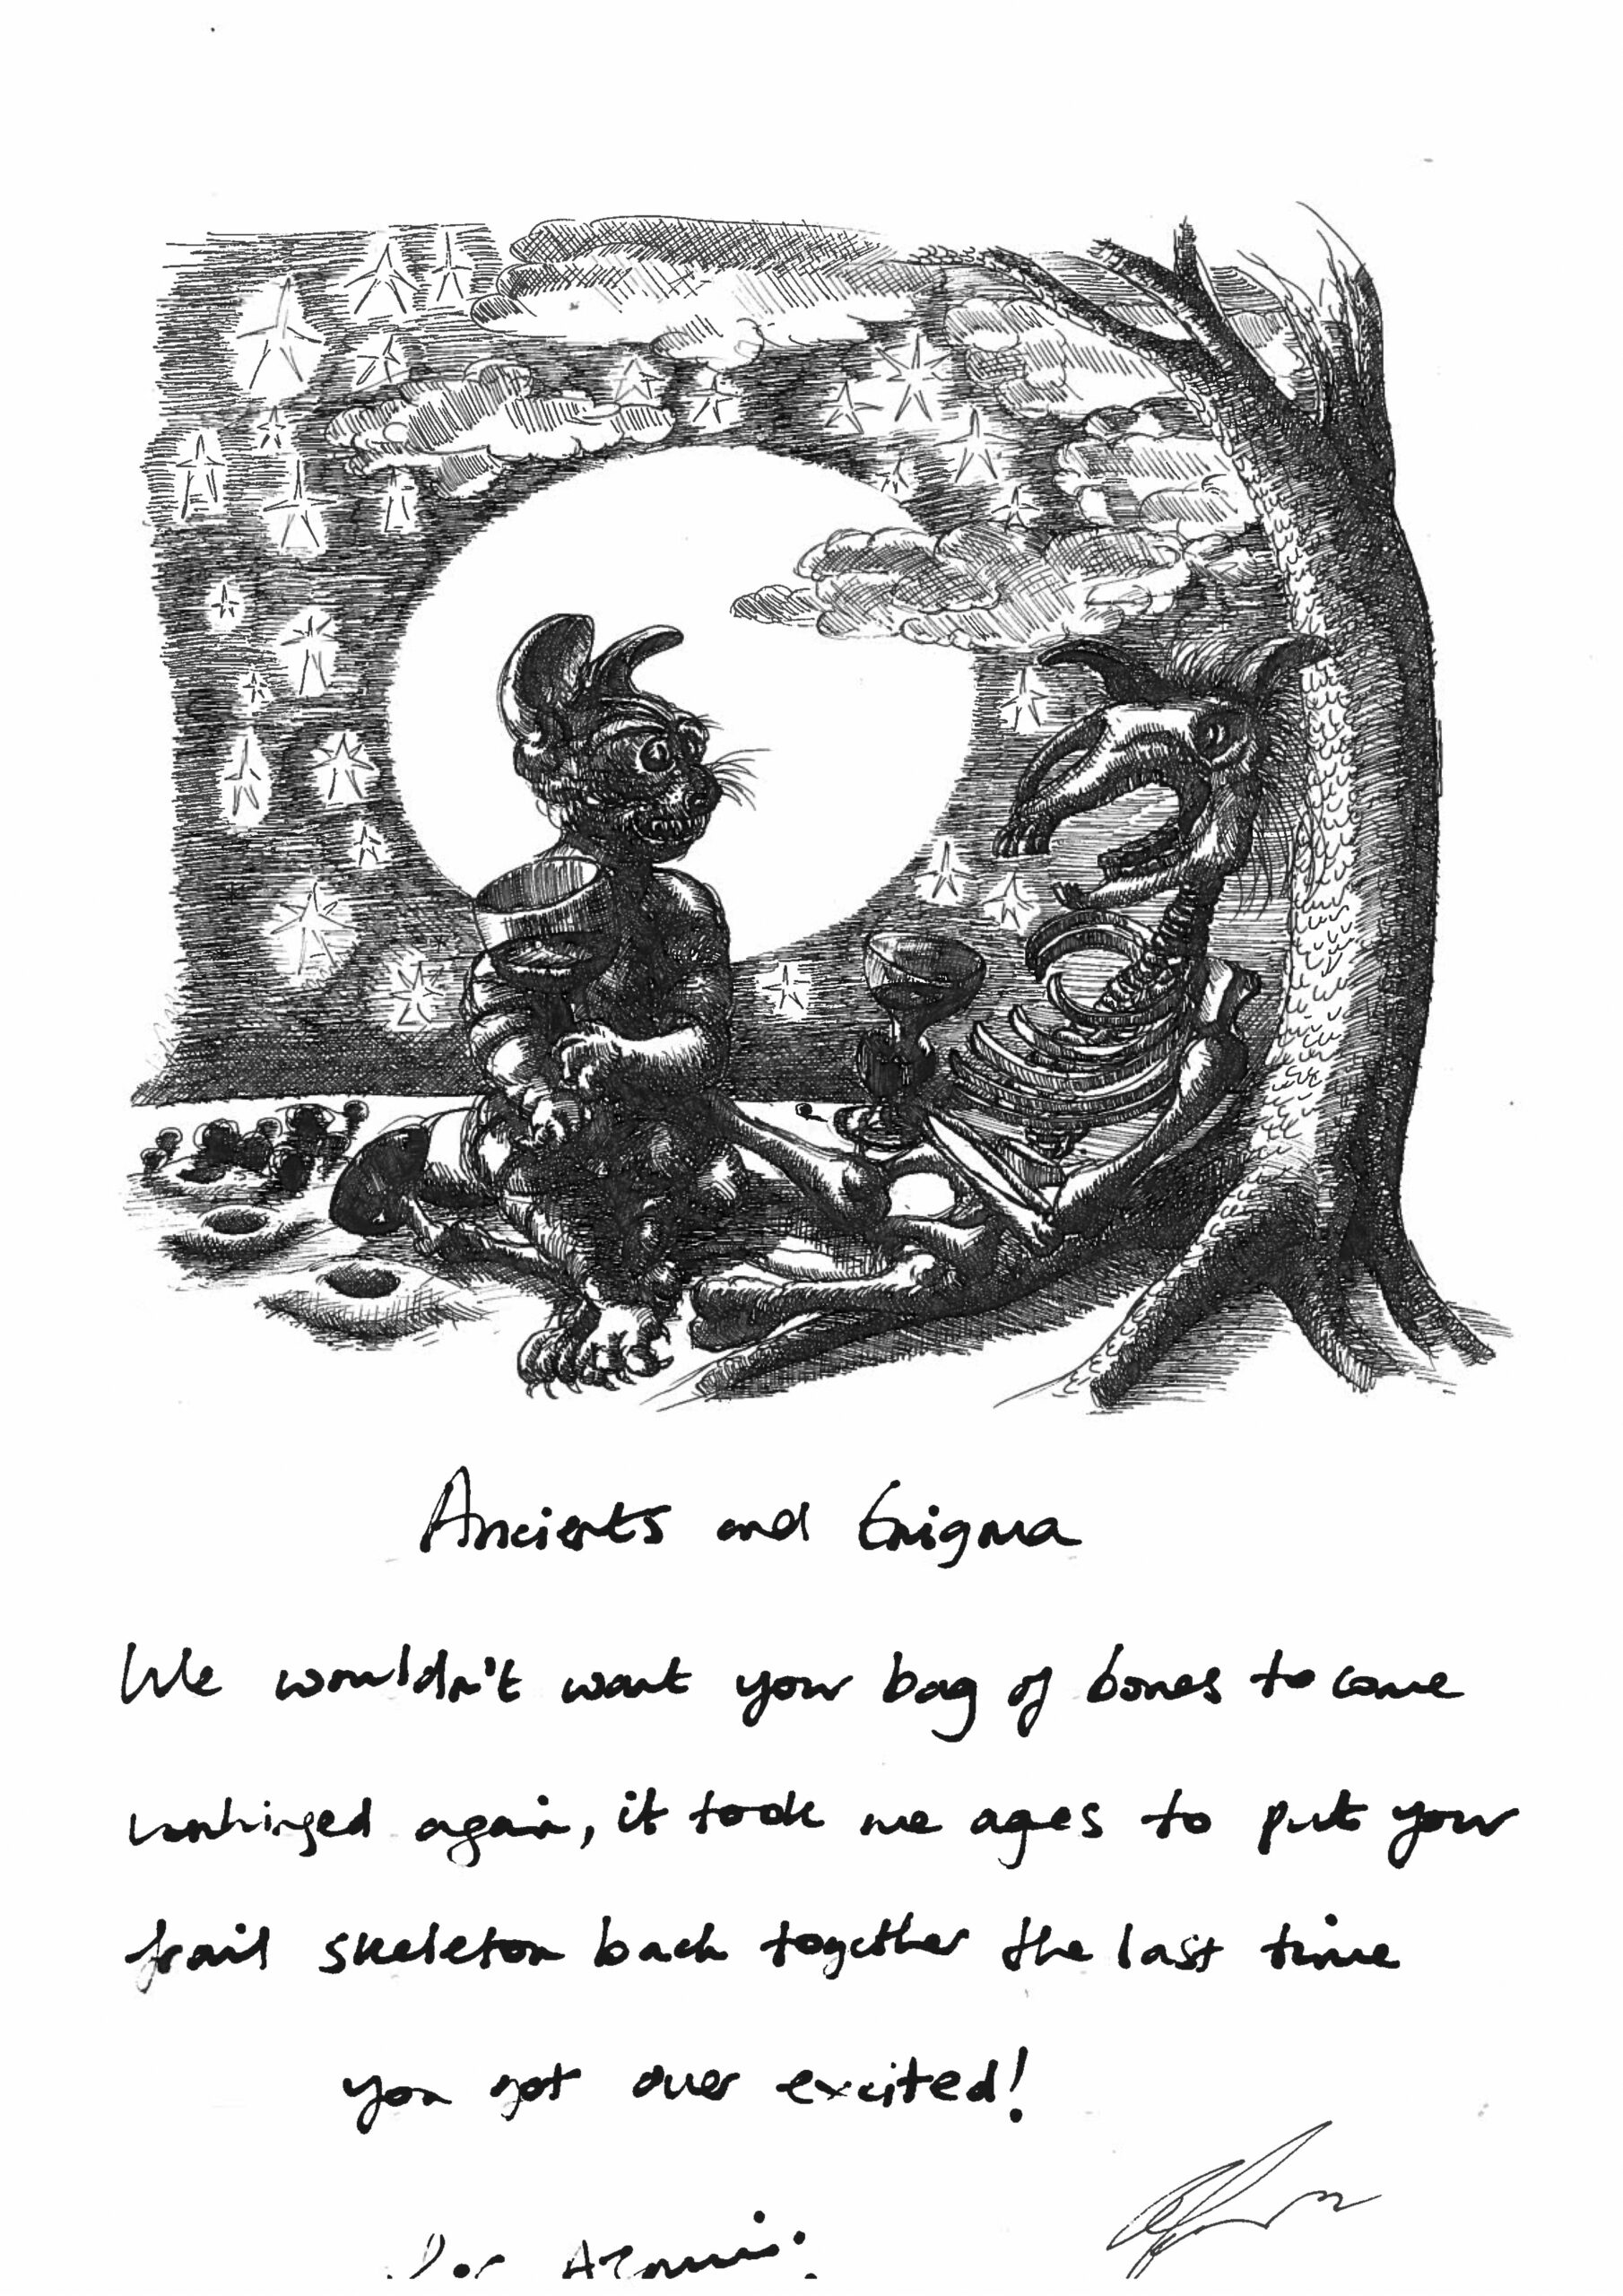 Ancients and Enigma
We wouldn't want your bag of bones to come
unhinged again, it took me ages to put your
frail skeleton back together the last time
you got over excited!